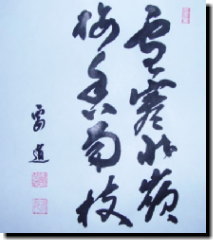 雪寒北嶺
梅香南枝